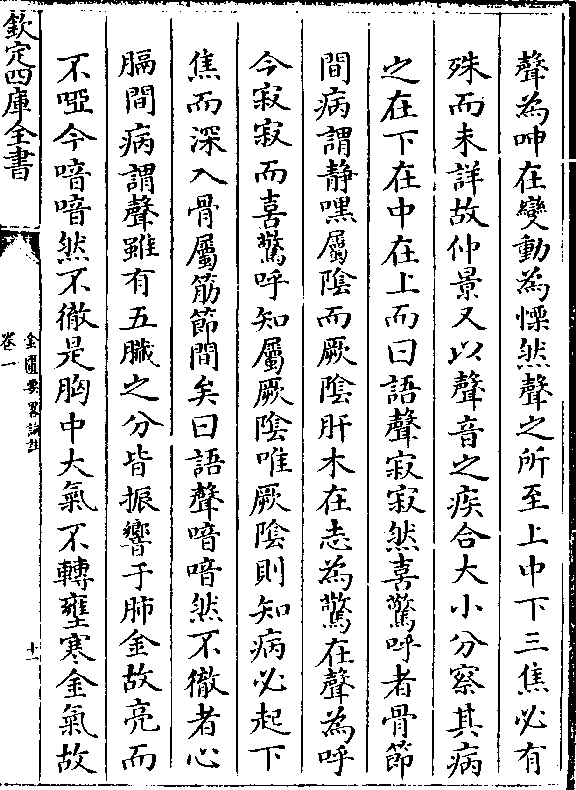 聲為呻在變動為慄然聲之所至上中下三焦必有
殊而未詳故仲景又以聲音之疾合大小分察其病
之在下在中在上而曰語聲寂寂然喜驚呼者骨節
間病謂静嘿屬陰而厥陰肝木在志為驚在聲為呼
今寂寂而喜驚呼知屬厥陰唯厥陰則知病必起下
焦而深入骨屬筋節間矣曰語聲喑喑然不徹者心
膈間病謂聲雖有五臟之分皆振響于肺金故亮而
不啞今喑喑然不徹是胸中大氣不轉壅寒金氣故
欽定四庫全書
金匱要畧論註
卷一
十一